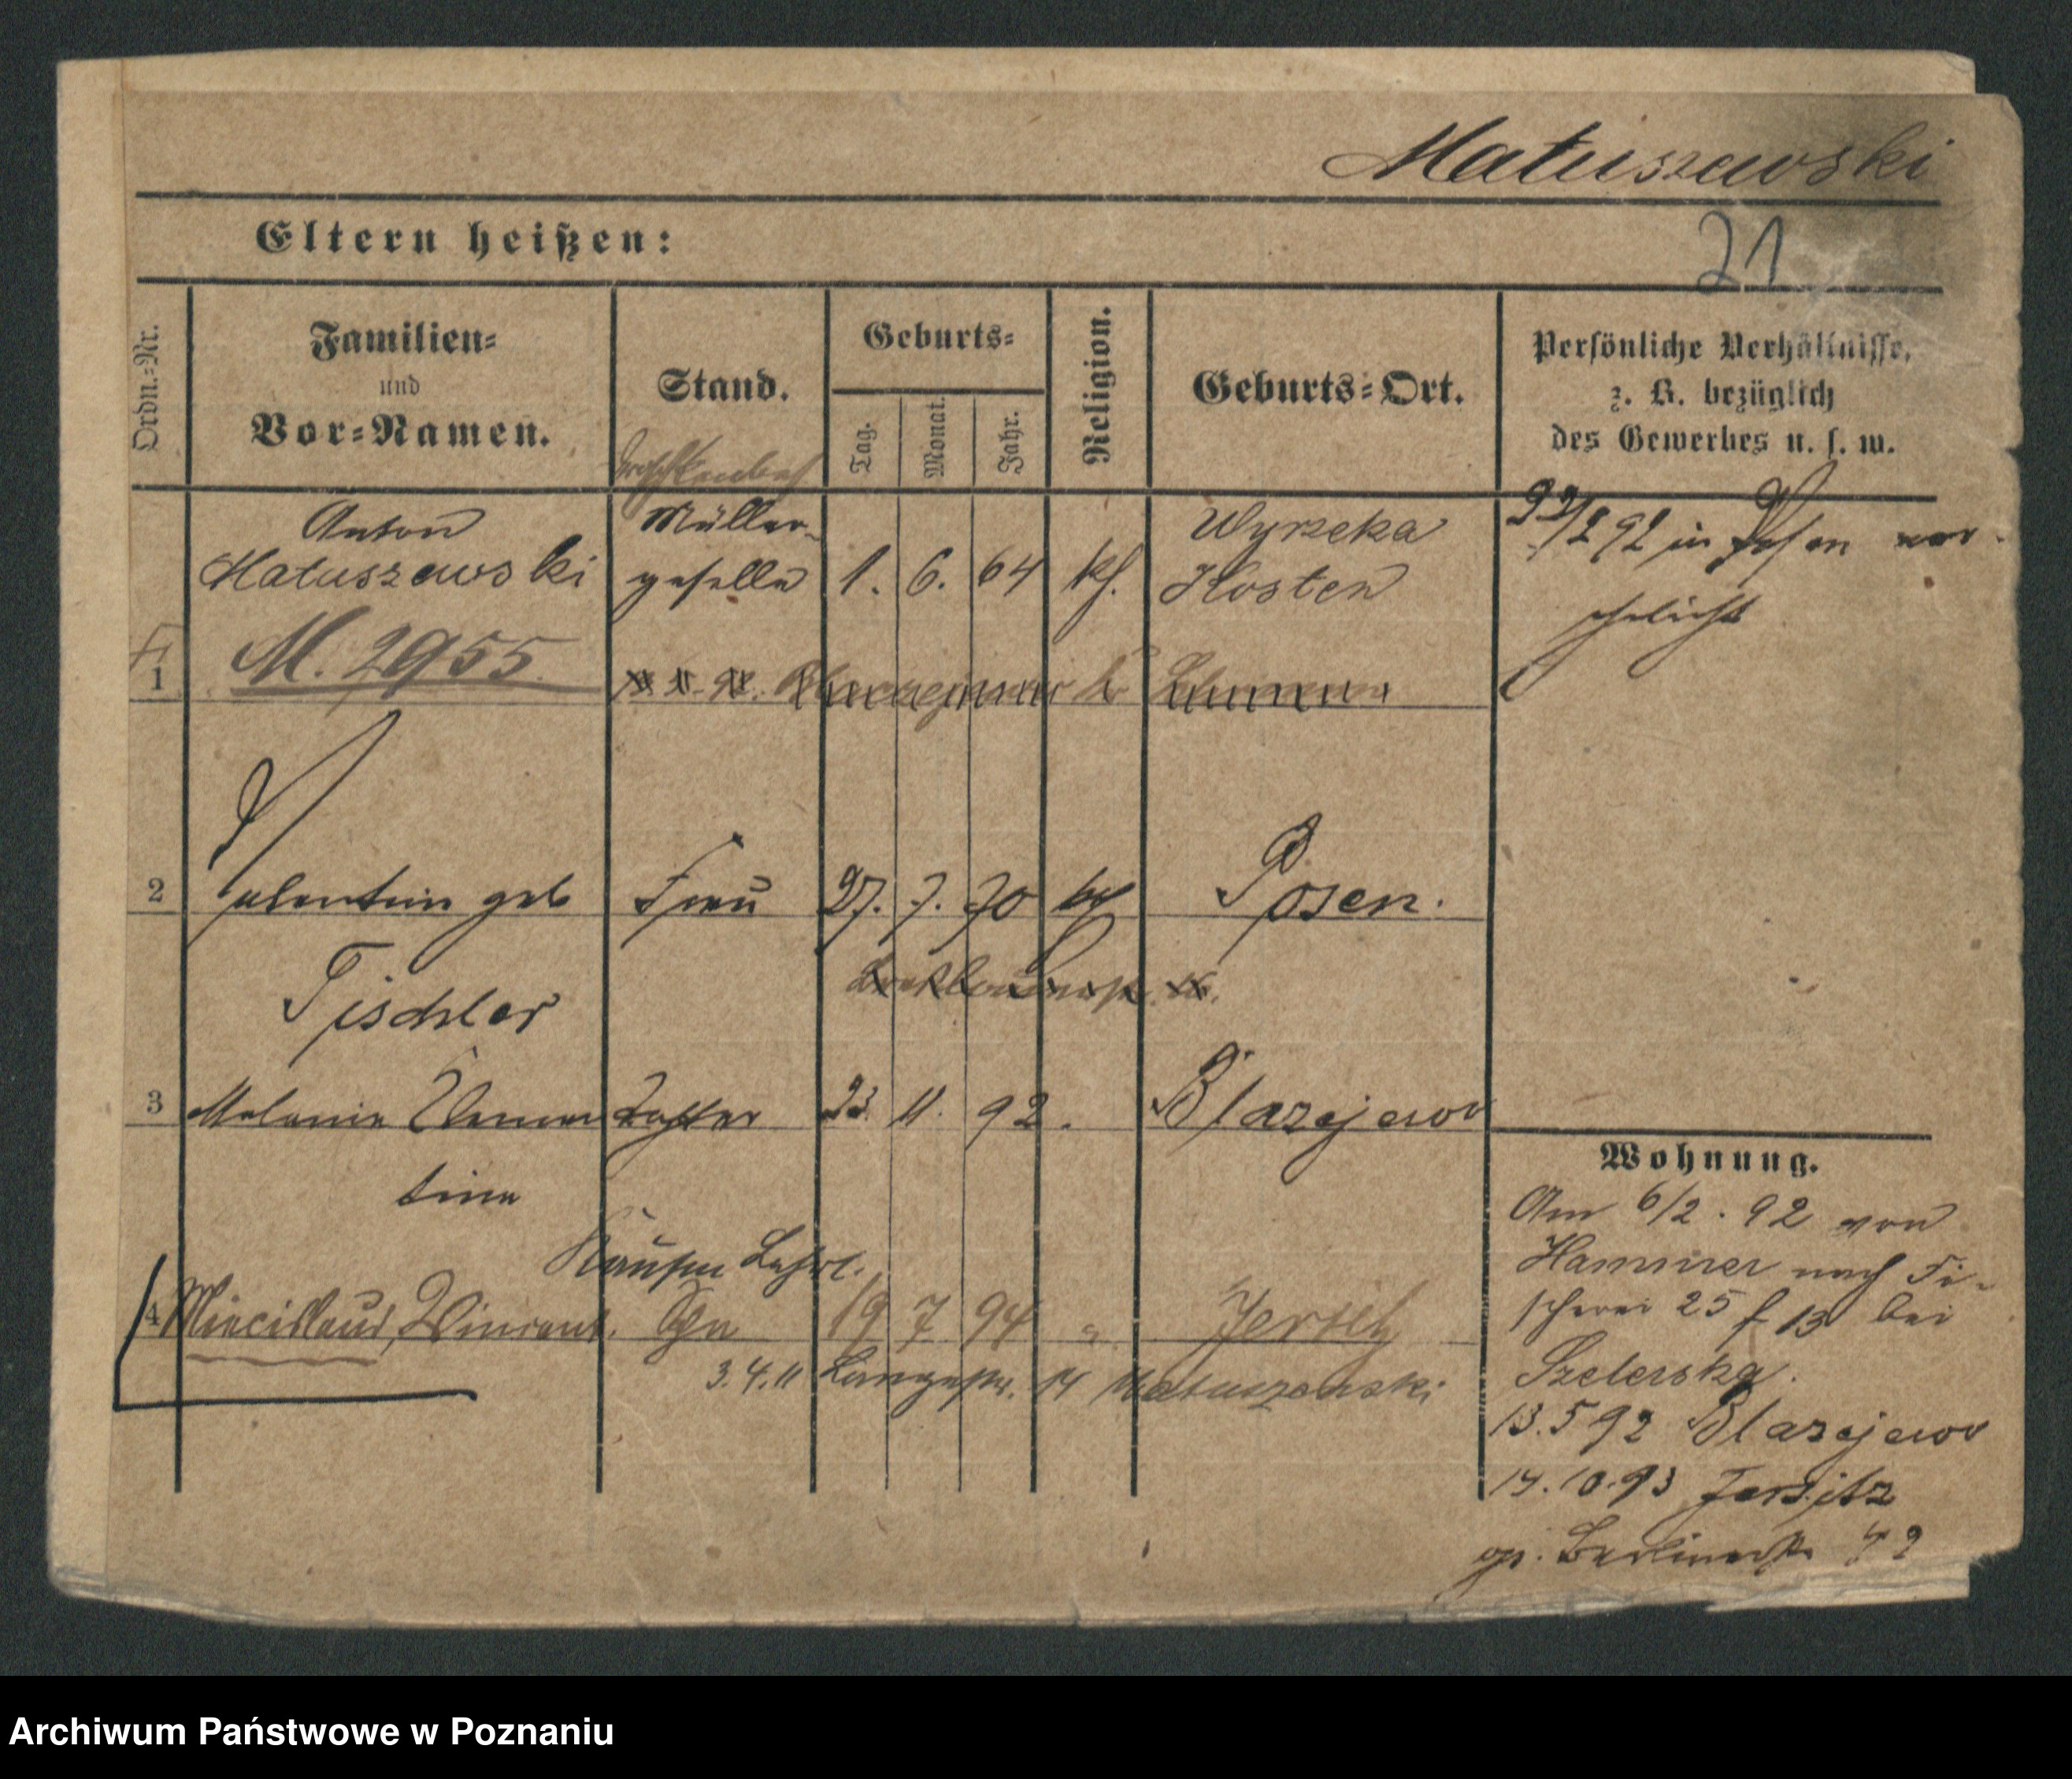 Matuszewski
21
Eltern heißen:
Ordn.-Nr.
Familien-
und
Vor-Namen.
Stand.
Geburts-
Tag.
Monat.
Jahr.
Religion.
Geburts-Ort.
Persönliche Verhältnisse,
z. B. bezüglich
des Gewerbes u. s. w.
1
Anton
Matuszewski
M. 2955.
Müller-
geselle
1. 6. 64
kf.
Wyrzeka
Kosten
92 in Posen ver-
ehelicht
2
Valentin geb
Tischler
Frau
27. 7. 70
Posen.
3
Melanie Clemen
tine
Tochter
23. 11. 92.
Blazejewo
4
Miecislaus, Vincent.
Kaufm Lehrl.
Sohn
19 7 94 "
Jersitz
3.4.11 Langestr. 14 Matuszewski
Wohnung.
Am 6/2. 92 von
Hammer nach Fi-
scherei 25 f 13 bei
Szelerska.
13.5 92 Blazejewo
14.10.93 Jersitz
gr. Berlinerstr 42
Archiwum Państwowe w Poznaniu